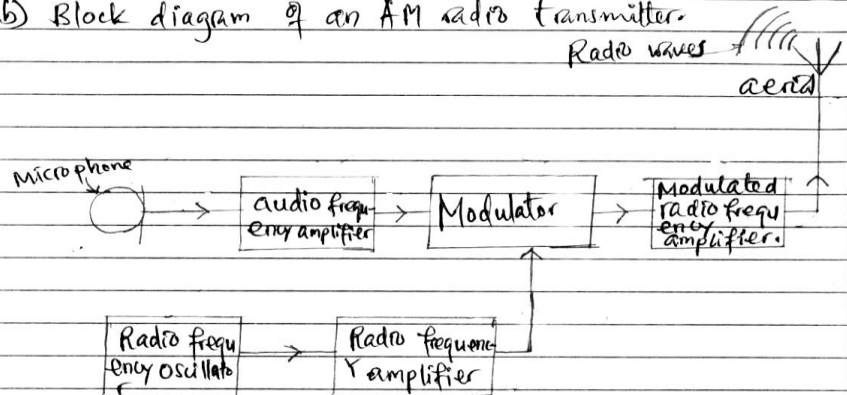 b) Block diagram of an AM radio transmitter.
Radio waves
aerial
Microphone
audio frequ-
ency amplifier
Modulator
Modulated
radio frequ
ency
amplifier.
Radio frequ
ency oscillato
r
Radio frequenc
y amplifier